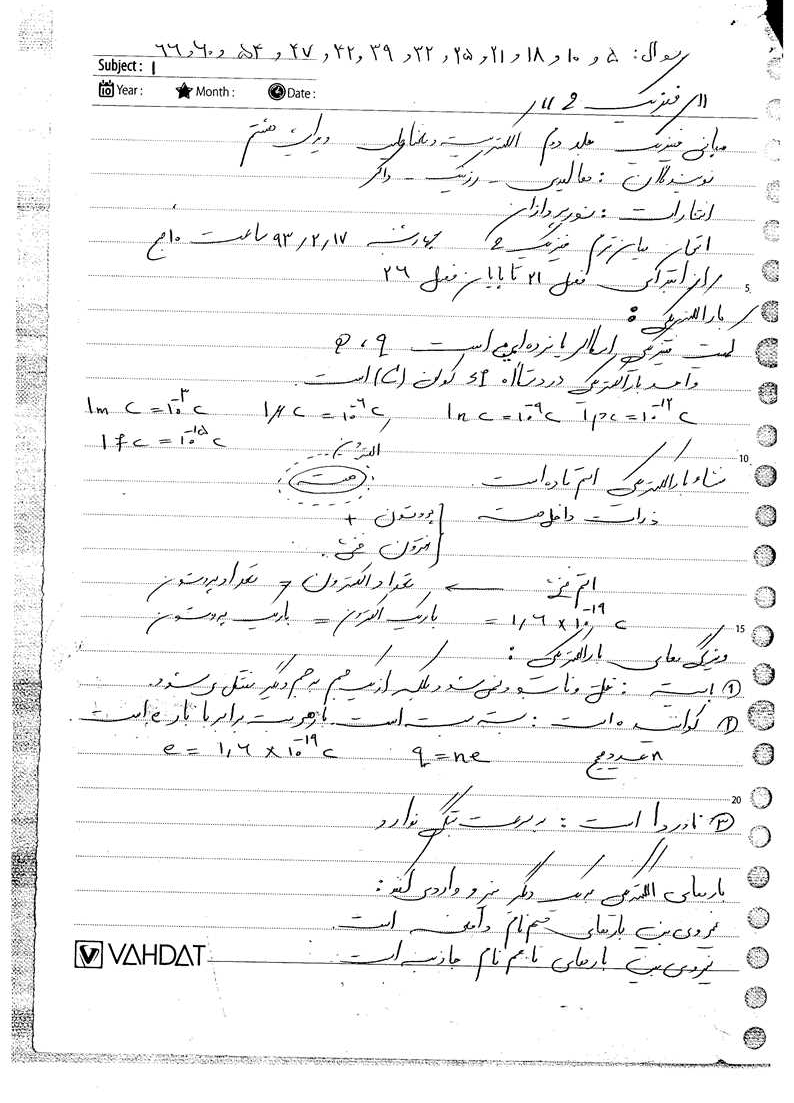 سوال: ۵ و ۱۰ و ۱۸ و ۲۱ و ۲۵ و ۳۲ و ۳۹ و ۴۲ و ۴۷ و ۵۴ و ۶۰ و ۶۶
Subject: 1
Year: Month: Date:
// فیزیک 2 //
مبانی فیزیک جلد دوم الکتریسیته و مغناطیس ویرایش هشتم
نویسندگان: هالیدی - رزنیک - واکر
انتشارات: نوپردازان
امتحان میان ترم فیزیک 2 چهارشنبه ۹۳/۲/۱۷ ساعت ۱۰ صبح
از ابتدای فصل ۲۱ تا پایان فصل ۲۶
5
بار الکتریکی:
کمیت فیزیکی اسکالر یا نرده‌ای است q ،
واحد بار الکتریکی در دستگاه SI کولن (C) است.
1m c = 10⁻³ c 1μ c = 10⁻⁶ c 1n c = 10⁻⁹ c 1p c = 10⁻¹² c
1f c = 10⁻¹⁵ c
10
الکترون...
منشاء بار الکتریکی اتم ماده است.
هسته
ذرات داخل هسته
پروتون +
نوترون خنثی.
اتم خنثی ← تعداد الکترون = تعداد پروتون
15
بار یک الکترون = بار یک پروتون = 1,6 × 10⁻¹⁹ c
ویژگی های بار الکتریکی:
① پایسته: خلق و نابود نمی شود بلکه از یک جسم به جسم دیگر منتقل می شود.
② کوانتیده است: بسته بسته است.
n عدد صحیح q = ne e = 1,6 × 10⁻¹⁹ c
20
③ ناوردا است: به سرعت بستگی ندارد
بارهای الکتریکی به یکدیگر نیرو وارد می کنند:
نیروی بین بارهای هم نام دافعه است.
نیروی بین بارهای ناهم نام جاذبه است
VAHDAT